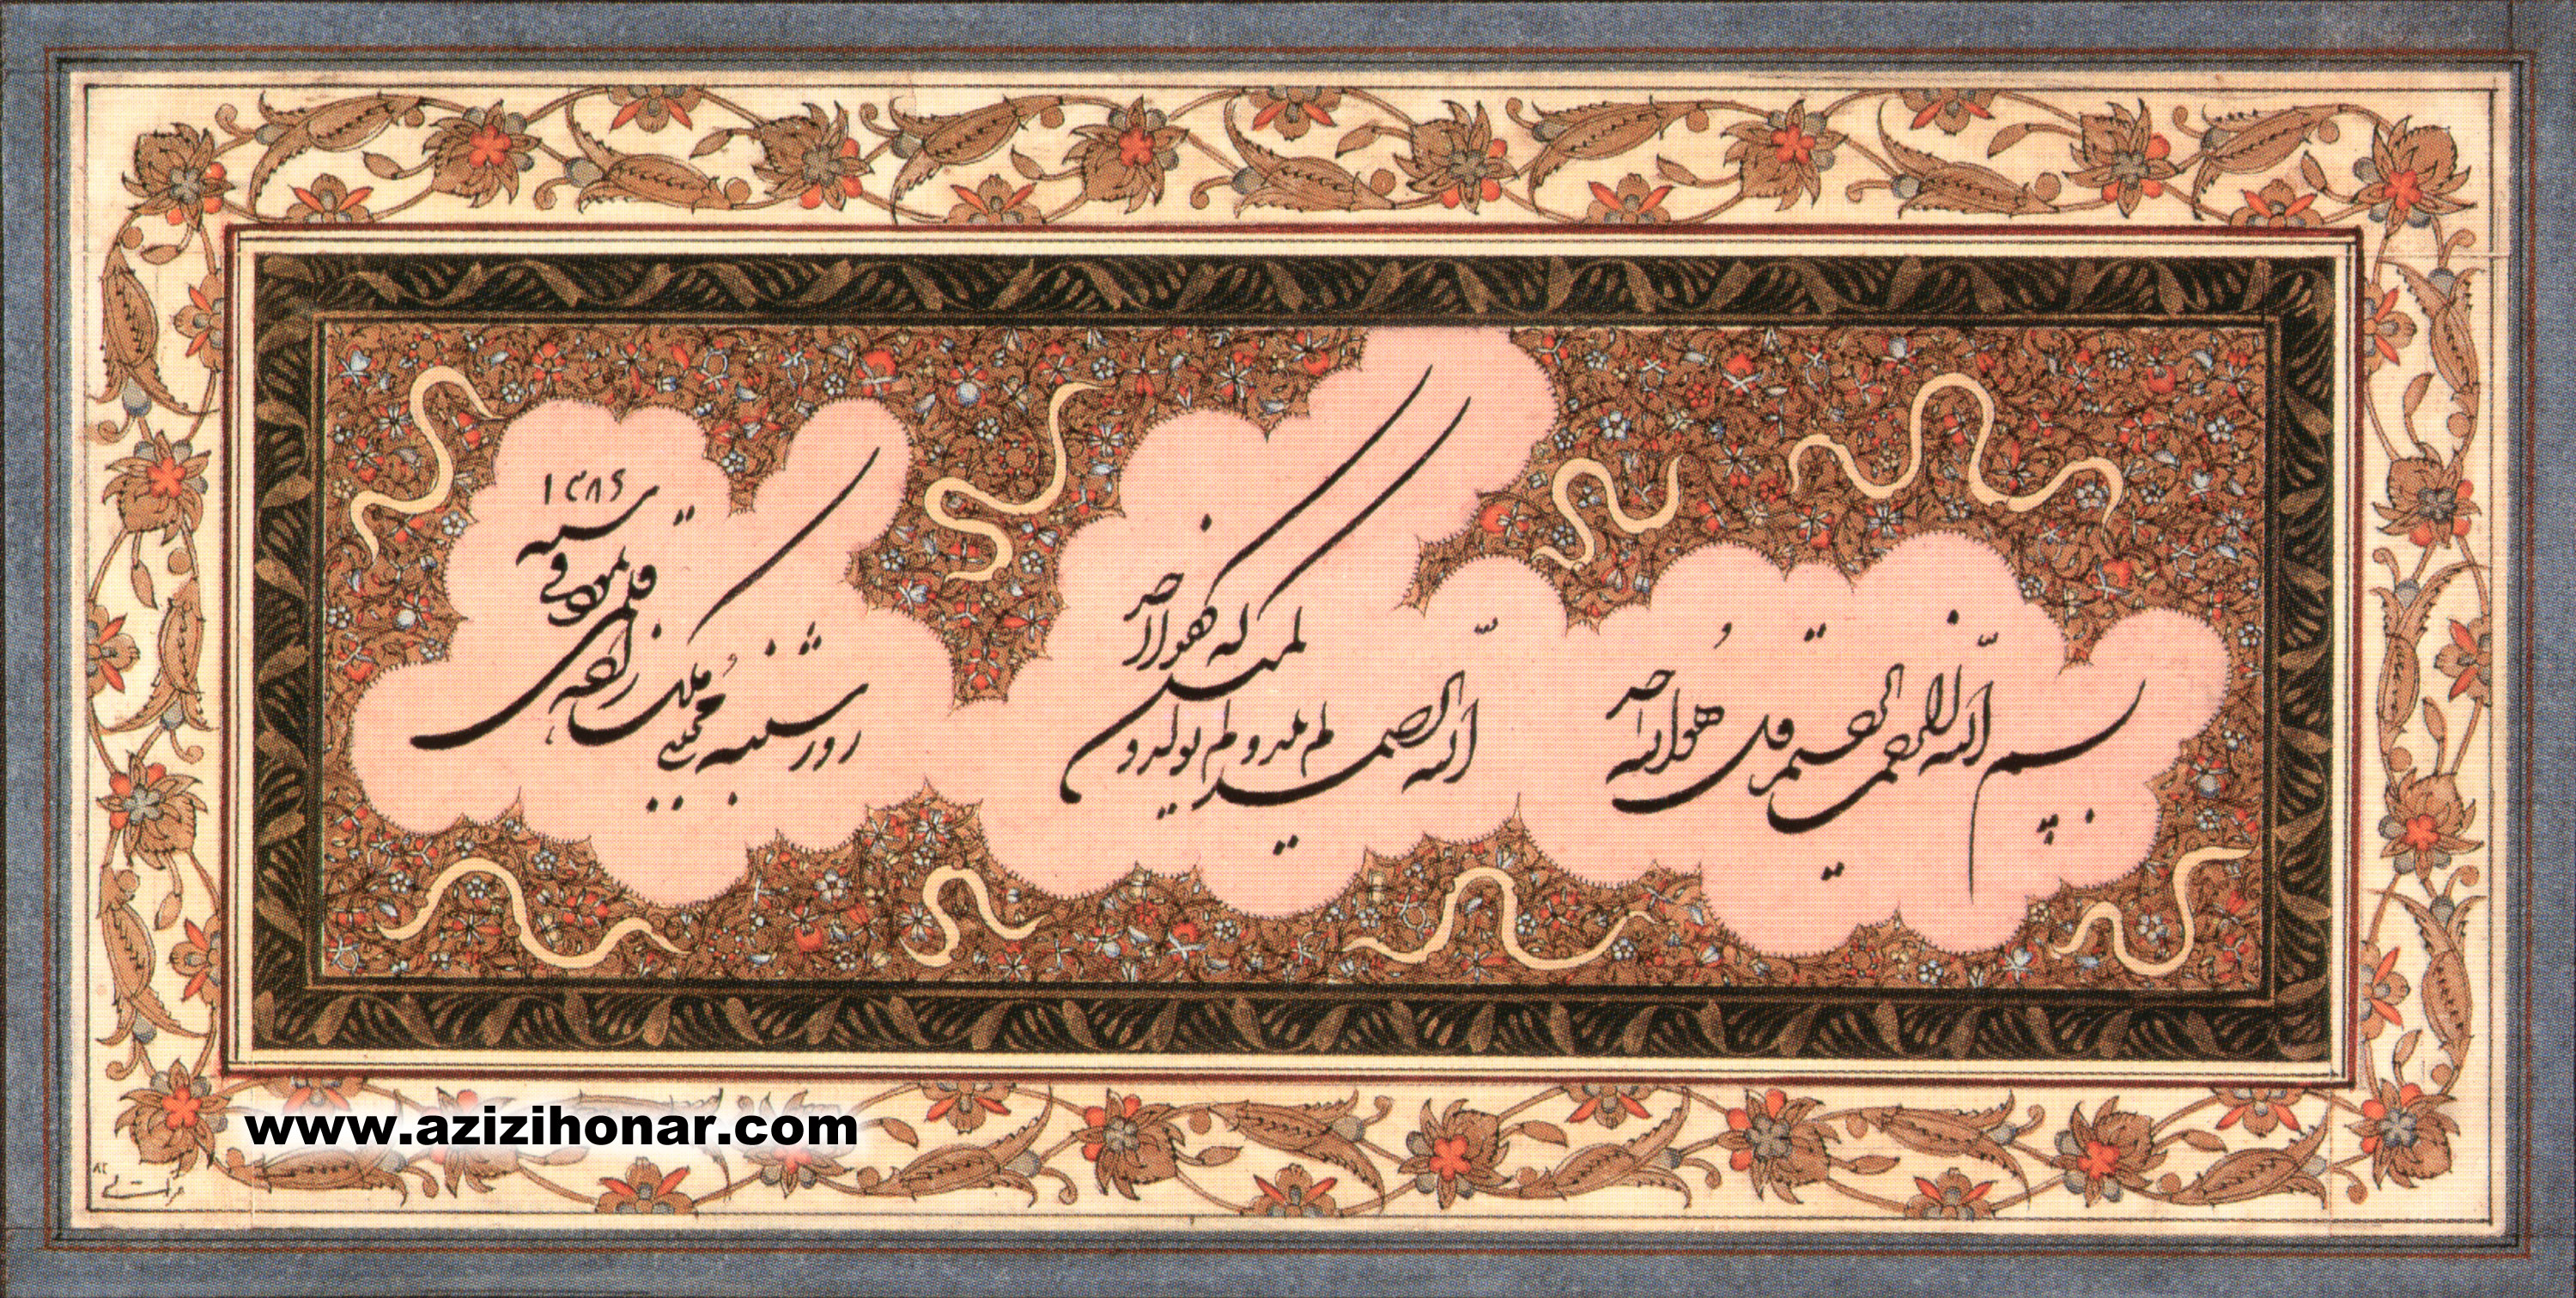 بسم الله الرحمن الرحیم قل هو الله احد
الله الصمد لم یلد و لم یولد و
لم یکن له کفوا احد
روز شنبه مجتبی ملک زاده
قلمی نمود فی سنه ۱۳۸۶
www.azizihonar.com